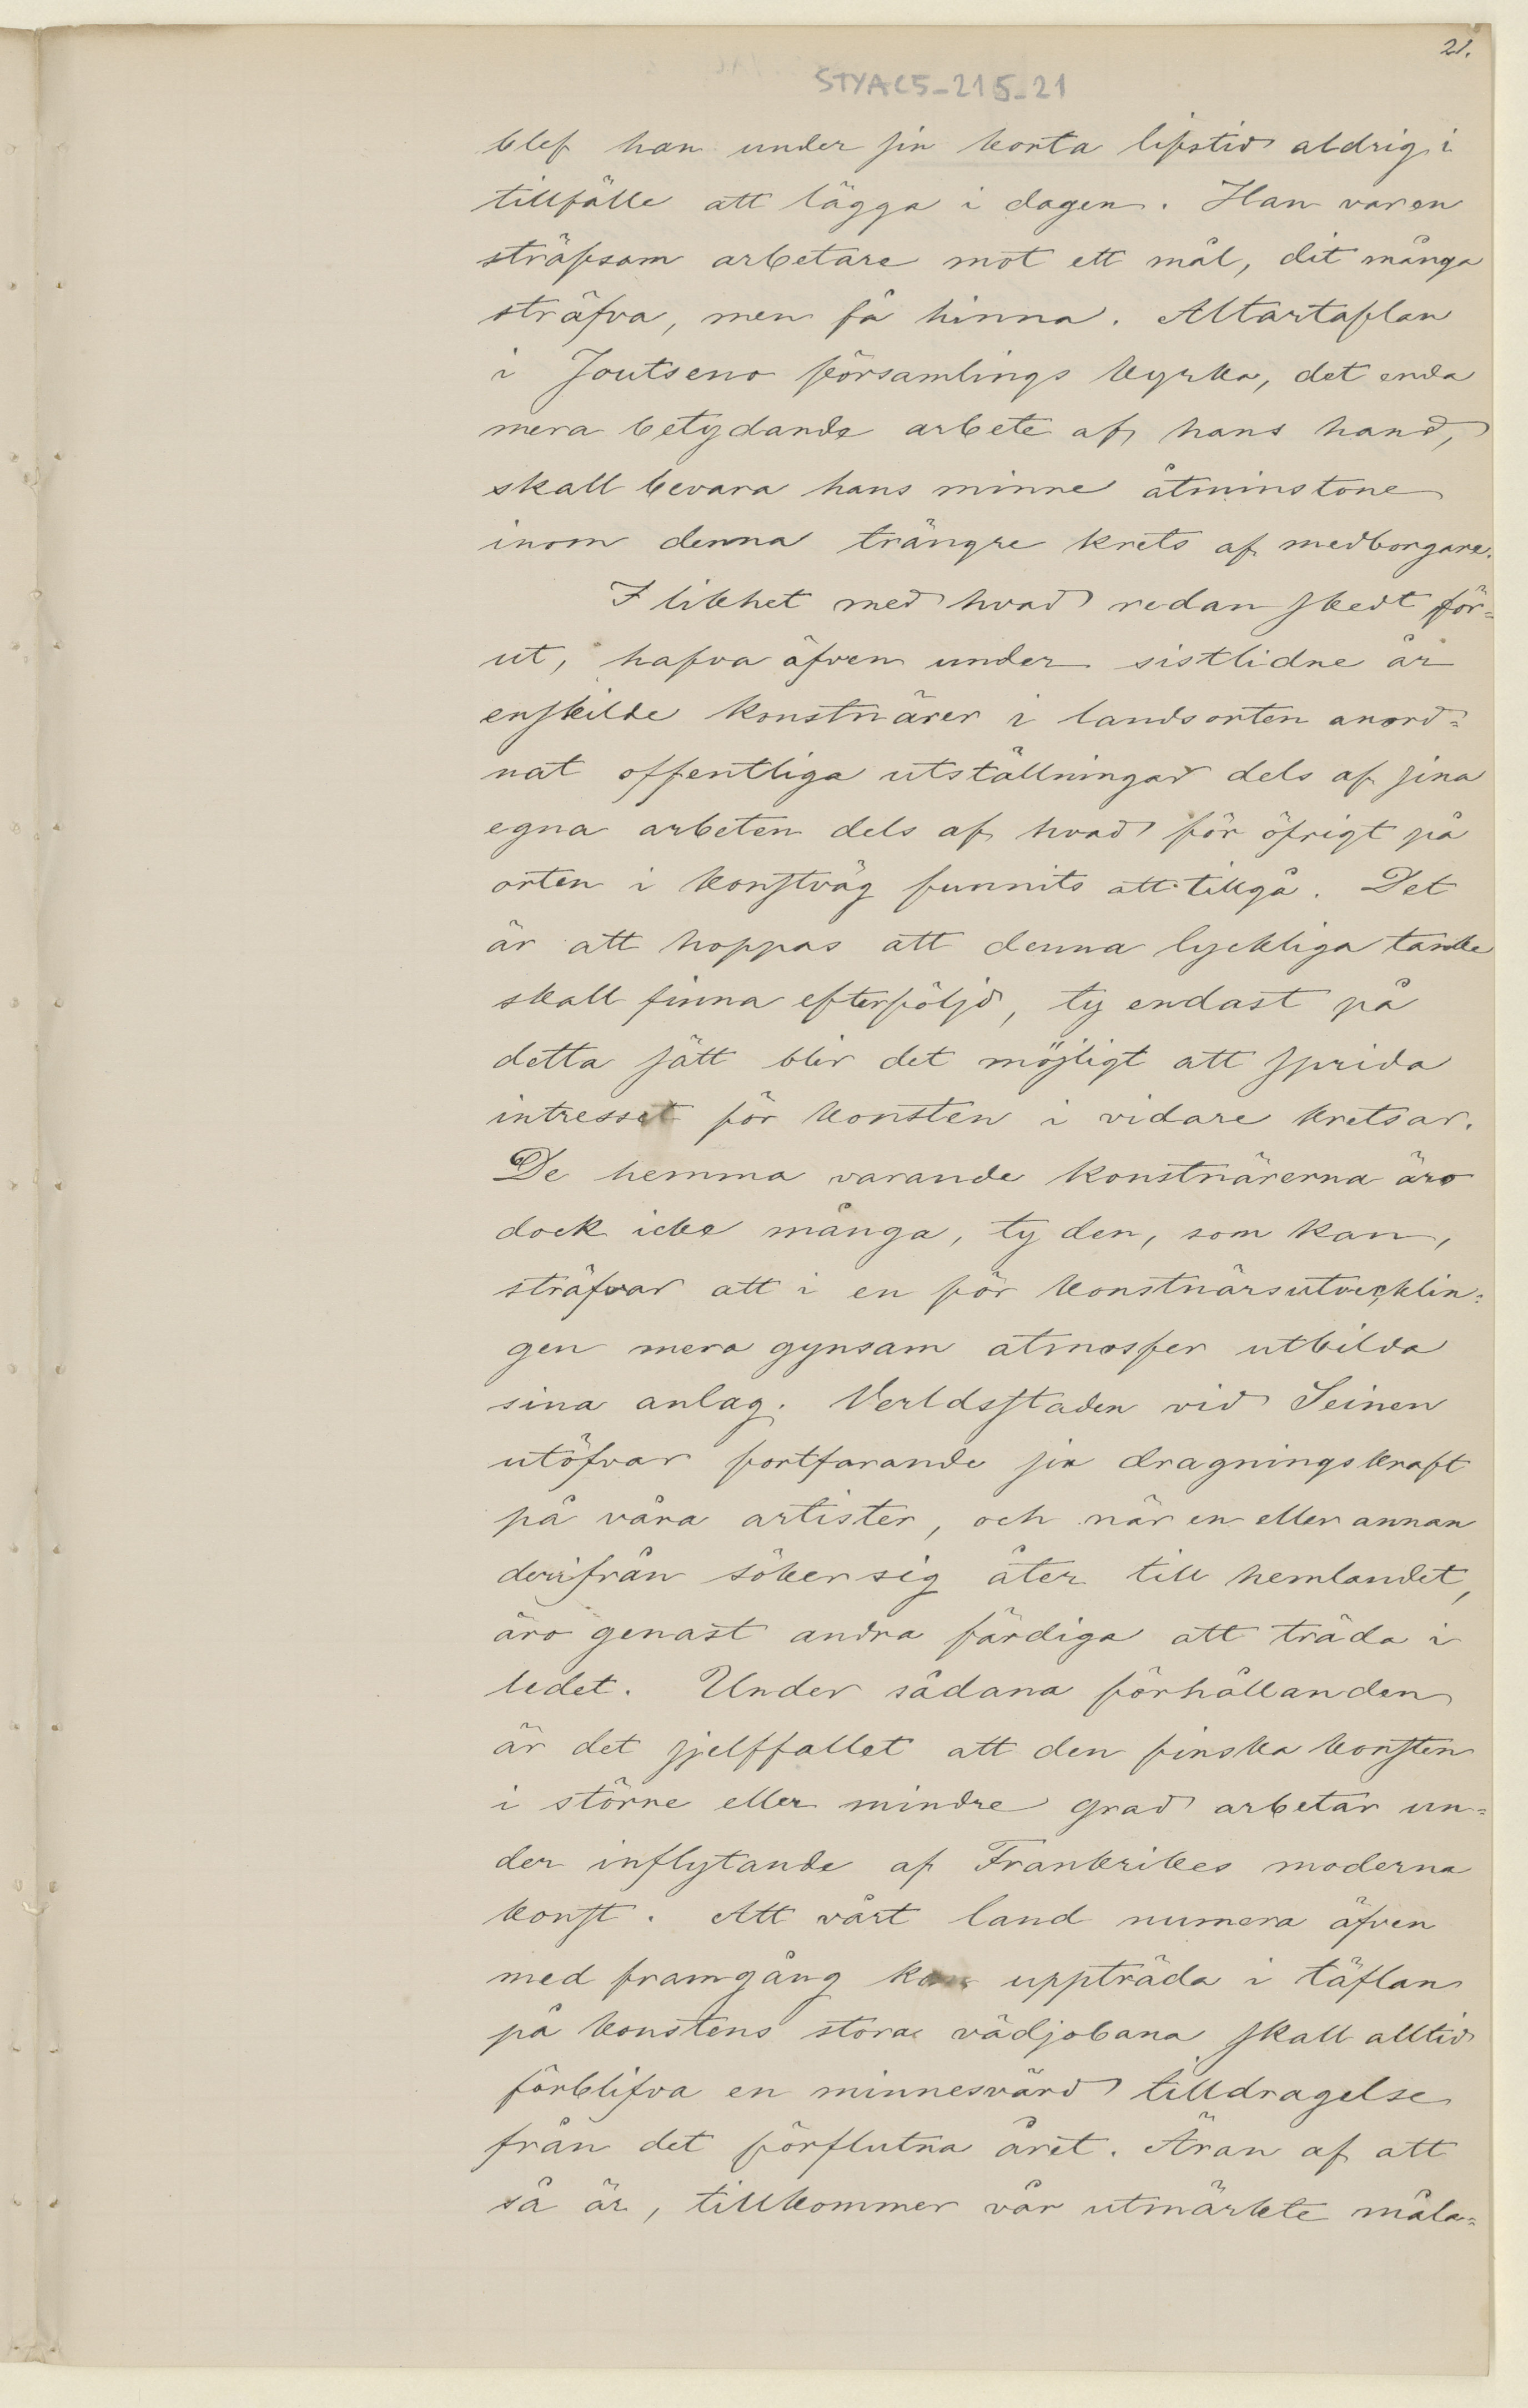 21.
STYAC5-215-21
blef han under sin korta lifstid aldrig i
tillfälle att lägga i dagen. Han var en
sträfsam arbetare mot ett mål, dit många
sträfva, men få hinna. Altartaflan
i Joutseno församlings kyrka, det enda
mera betydande arbete af hans hand,
skall bevara hans minne åtminstone
inom denna trängre krets af medborgare.
I likhet med hvad redan skedt för-
ut, hafva äfven under sistlidne år
enskilde konstnärer i landsorten anord-
nat offentliga utställningar dels af sina
egna arbeten dels af hvad för öfrigt på
orten i konstväg funnits att tillgå. Det
är att hoppas att denna lyckliga tanke
skall finna efterföljd, ty endast på
detta sätt blir det möjligt att sprida
intresset för konsten i vidare kretsar.
De hemma varande konstnärerna äro
dock icke många, ty den, som kan,
sträfvar att i en för konstnärsutvecklin-
gen mera gynsam atmosfer utbilda
sina anlag. Verldsstaden vid Seinen
utöfvar fortfarande sin dragningskraft
på våra artister, och när en eller annan
derifrån söker sig åter till hemlandet,
äro genast andra färdiga att träda i
ledet. Under sådana förhållanden
är det sjelffallet att den finska konsten
i större eller mindre grad arbetar un-
der inflytande af Frankrikes moderna
konst. Att vårt land numera äfven
med framgång kan uppträda i täflan
på konstens stora vädjobana skall alltid
förblifva en minnesvärd tilldragelse
från det förflutna året. Äran af att
så är, tillkommer vår utmärkte måla-